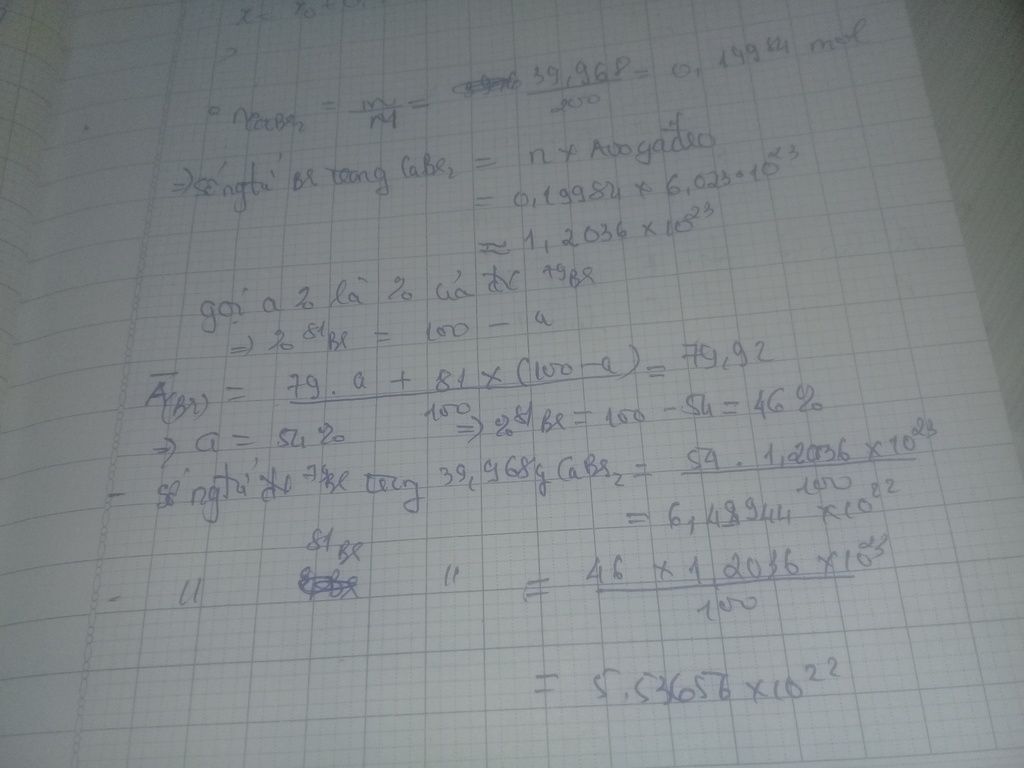 x =
n CaBr₂ = m/M = 39,968/200 = 0,19984 mol
⇒ số ngtử Br trong CaBr₂ = n × Avogađro
= 0,19984 × 6,023.10²³
≈ 1,2036 × 10²³
gọi a % là % của đv ⁷⁹Br
⇒ % ⁸¹Br = 100 - a
A̅(Br) = (79.a + 81 × (100-a))/100 = 79,92
⇒ a = 54% ⇒ % ⁸¹Br = 100 - 54 = 46%
- số ngtử đv ⁷⁹Br trong 39,968g CaBr₂ = (54 . 1,2036 × 10²³)/100
= 6,49944 × 10²²
- " ⁸¹Br " = (46 × 1,2036 × 10²³)/100
= 5.53656 × 10²²